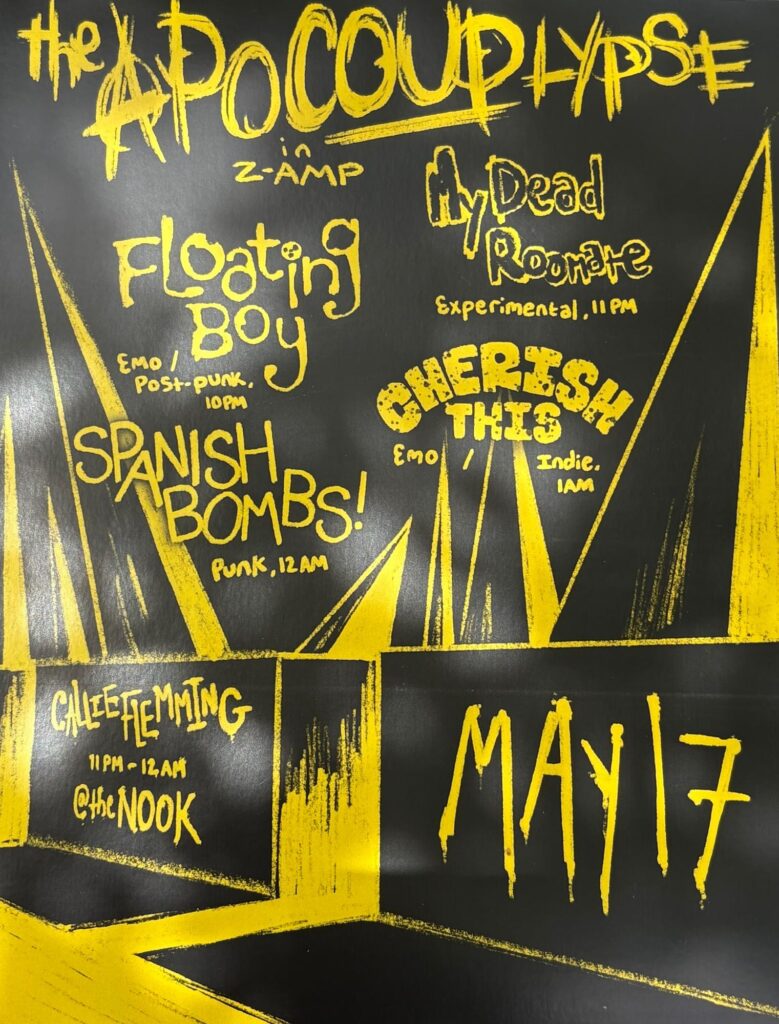 the APOCOUPLYPSE
in
Z-AMP
My Dead
Roomate
Experimental, 11 PM
Floating
Boy
Emo /
Post-punk,
10PM
CHERISH
THIS
Emo / Indie,
1AM
SPANISH
BOMBS!
Punk, 12 AM
CALLIE FLEMMING
11 PM - 12 AM
@the NOOK
MAY 17